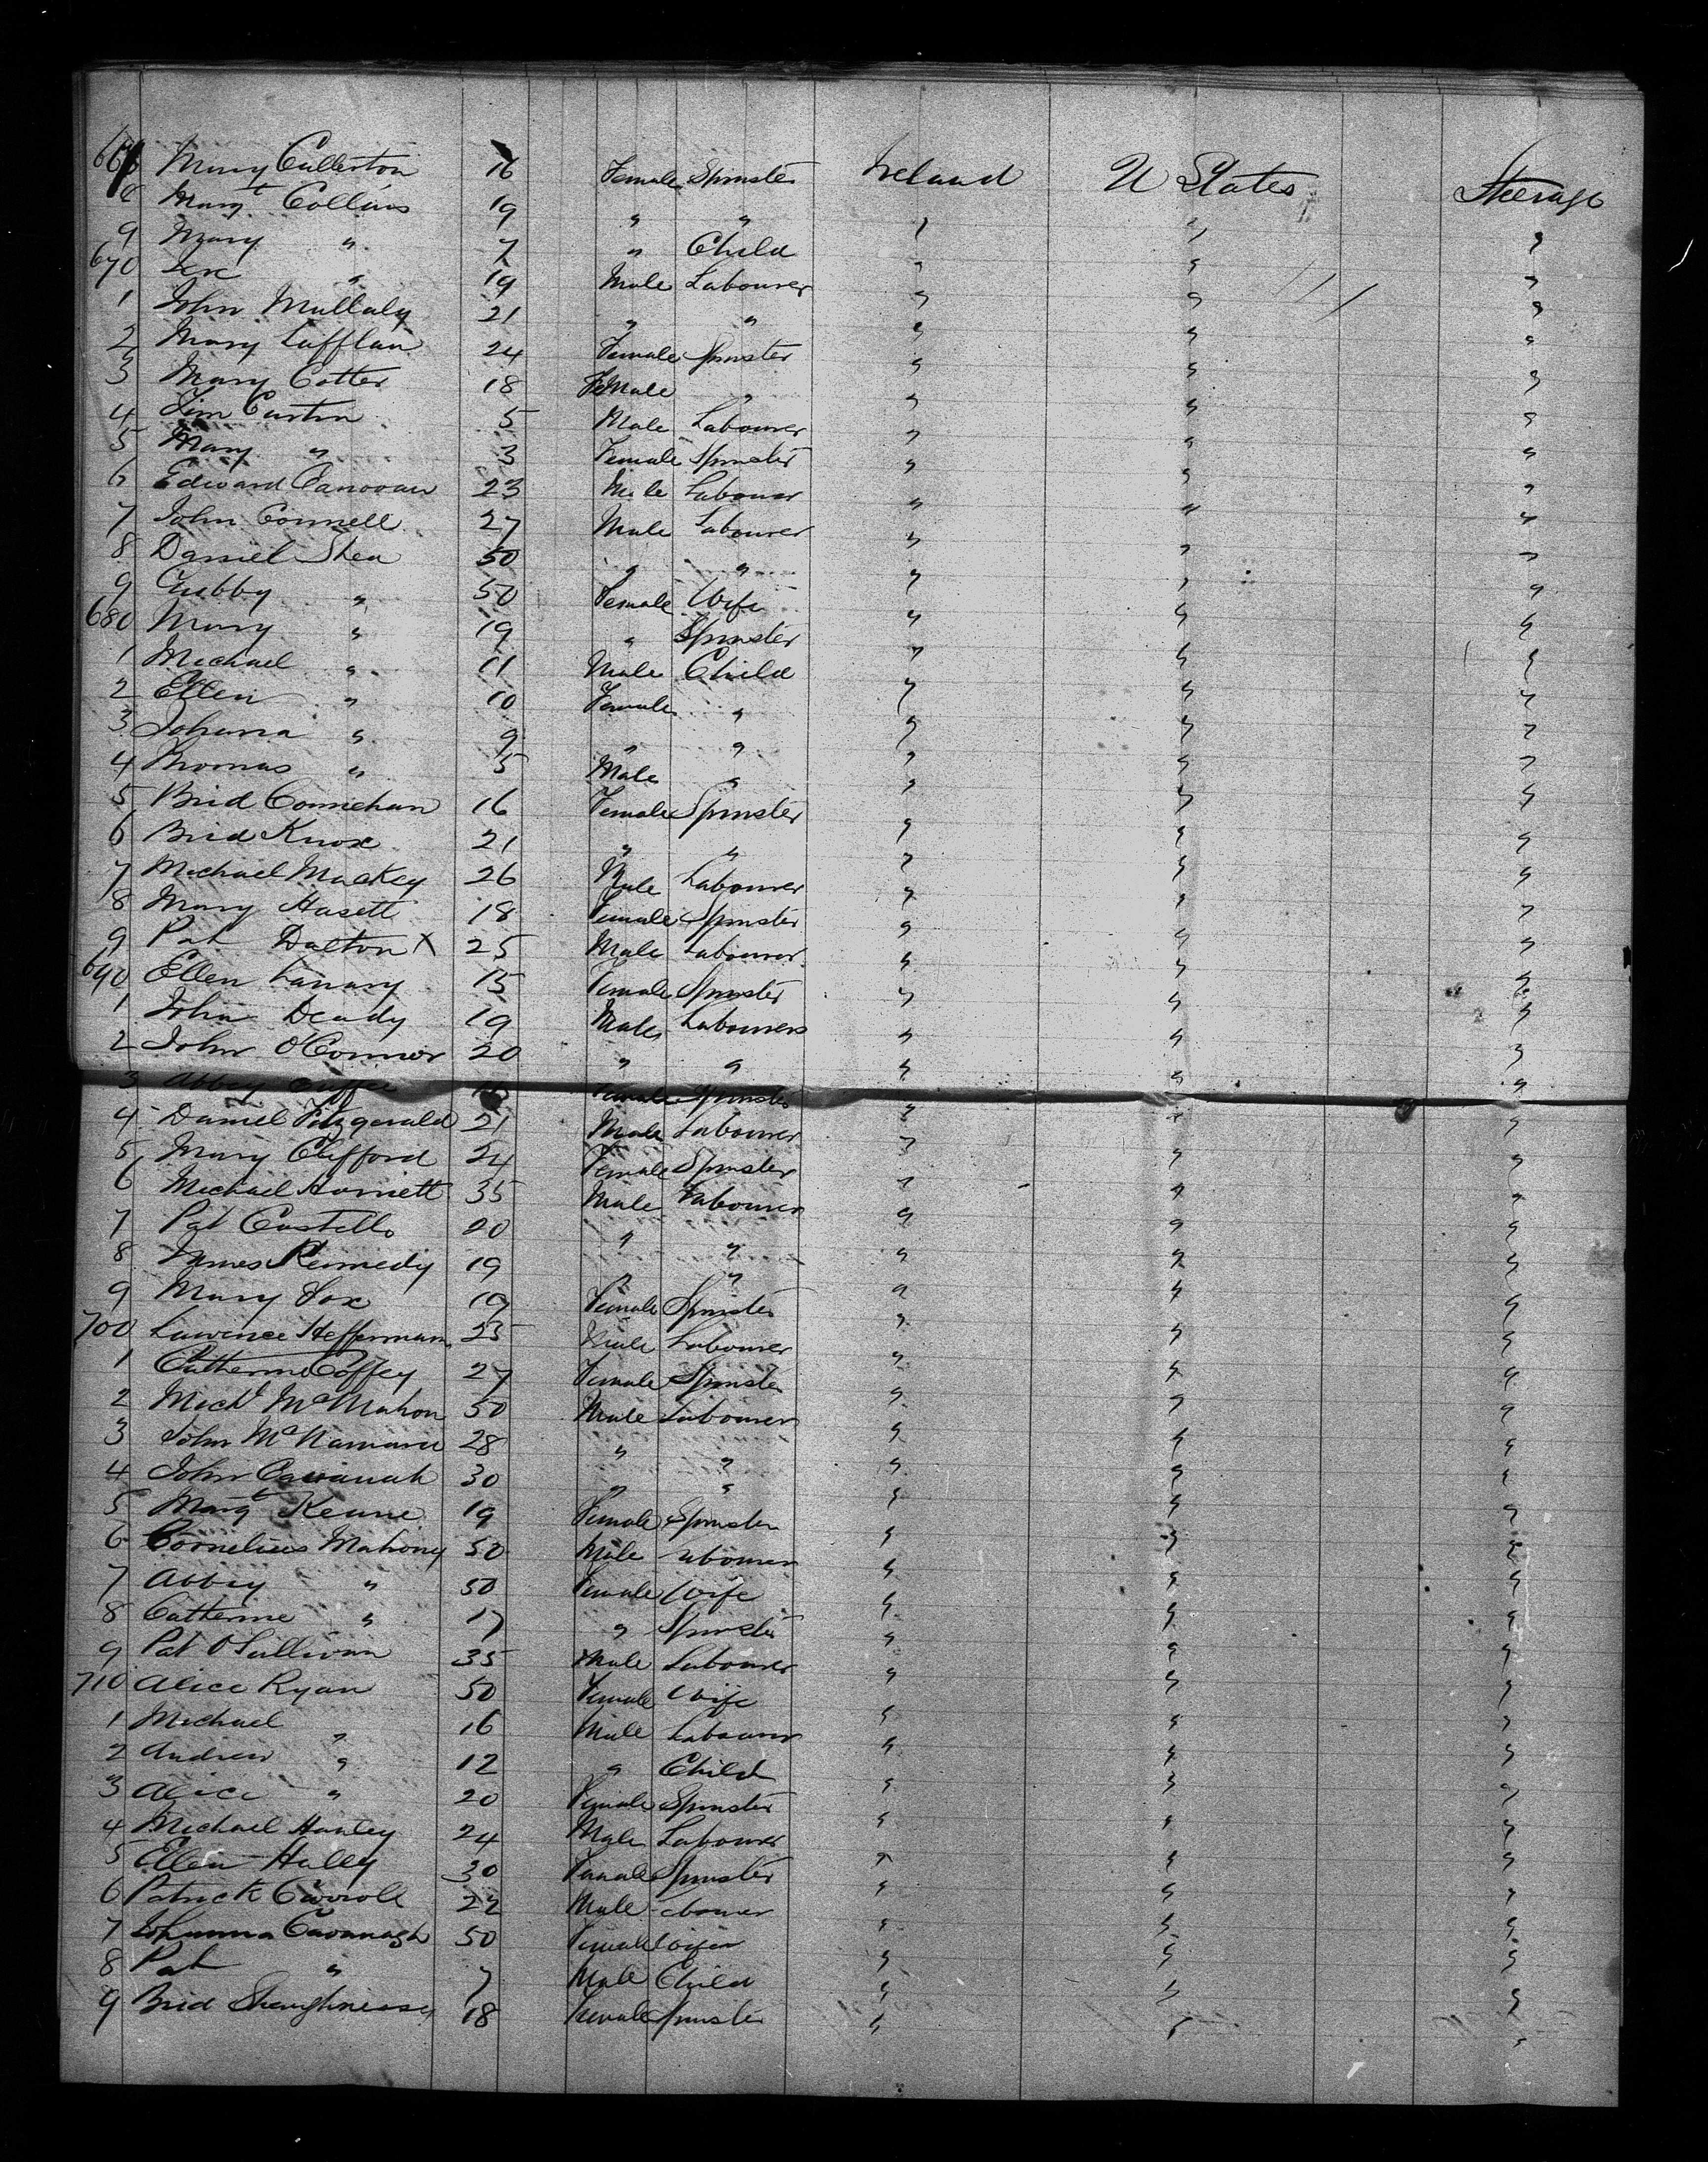 Mary Cullerton 16 Female Spinster Ireland U States Steerage
8 Margt Collins 19 " " " " "
9 Mary " 7 " Child " " "
670 " 19 Male Labourer " " "
1 John Mullaly 21 " " " " "
2 Mary Lafflan 24 Female Spinster " " "
3 Mary Cotter 18 Female " " " "
4 Tim Curtin 5 Male Labourer " " "
5 Mary " 3 Female Spinster " " "
6 Edward Canovan 23 Male Labourer " " "
7 John Connell 27 Male Labourer " " "
8 Daniel Shea 50 " " " " "
9 Gubby " 50 Female Wife " " "
680 Mary " 19 " Spinster " " "
1 Michael " 11 Male Child " " "
2 Ellen " 10 Female " " " "
3 Johana " 9 " " " " "
4 Thomas " 5 Male " " " "
5 Brid Connehan 16 Female Spinster " " "
6 Brid Knox 21 " " " " "
7 Michael Mackey 26 Male Labourer " " "
8 Mary Hasett 18 Female Spinster " " "
9 Pat Dalton X 25 Male Labourer " " "
690 Ellen Lanary 15 Female Spinster " " "
1 John Deady 19 Males Labourers " " "
2 John O'Connor 20 " " " " "
3 Abbey Female Spinster " " "
4 Daniel Fitzgerald 21 Male Labourer " " "
5 Mary Clifford 24 Female Spinster " " "
6 Michael Harnett 35 Male Labourer " " "
7 Pat Costello 20 " " " " "
8 James Kennedy 19 " " " " "
9 Mary Fox 19 Female Spinster " " "
700 Lawrence Heffernan 25 Male Labourer " " "
1 Catherine Coffey 27 Female Spinster " " "
2 Michl McMahon 50 Male Labourer " " "
3 John McNamara 28 " " " " "
4 John Cavanah 30 " " " " "
5 Margt Keane 19 Female Spinster " " "
6 Cornelius Mahony 50 Male Labourer " " "
7 Abbey " 50 Female Wife " " "
8 Catherine " 17 " Spinster " " "
9 Pat O'Sullivan 35 Male Labourer " " "
710 Alice Ryan 50 Female Wife " " "
1 Michael " 16 Male Labourer " " "
2 Andrew " 12 " Child " " "
3 Alice " 20 Female Spinster " " "
4 Michael Hanley 24 Male Labourer " " "
5 Ellen Halley 30 Female Spinster " " "
6 Patrick Carroll 22 Male Labourer " " "
7 Johanna Cavanagh 50 Female Wife " " "
8 Pat " 7 Male Child " " "
9 Brid Shaughnessy 18 Female Spinster " " "